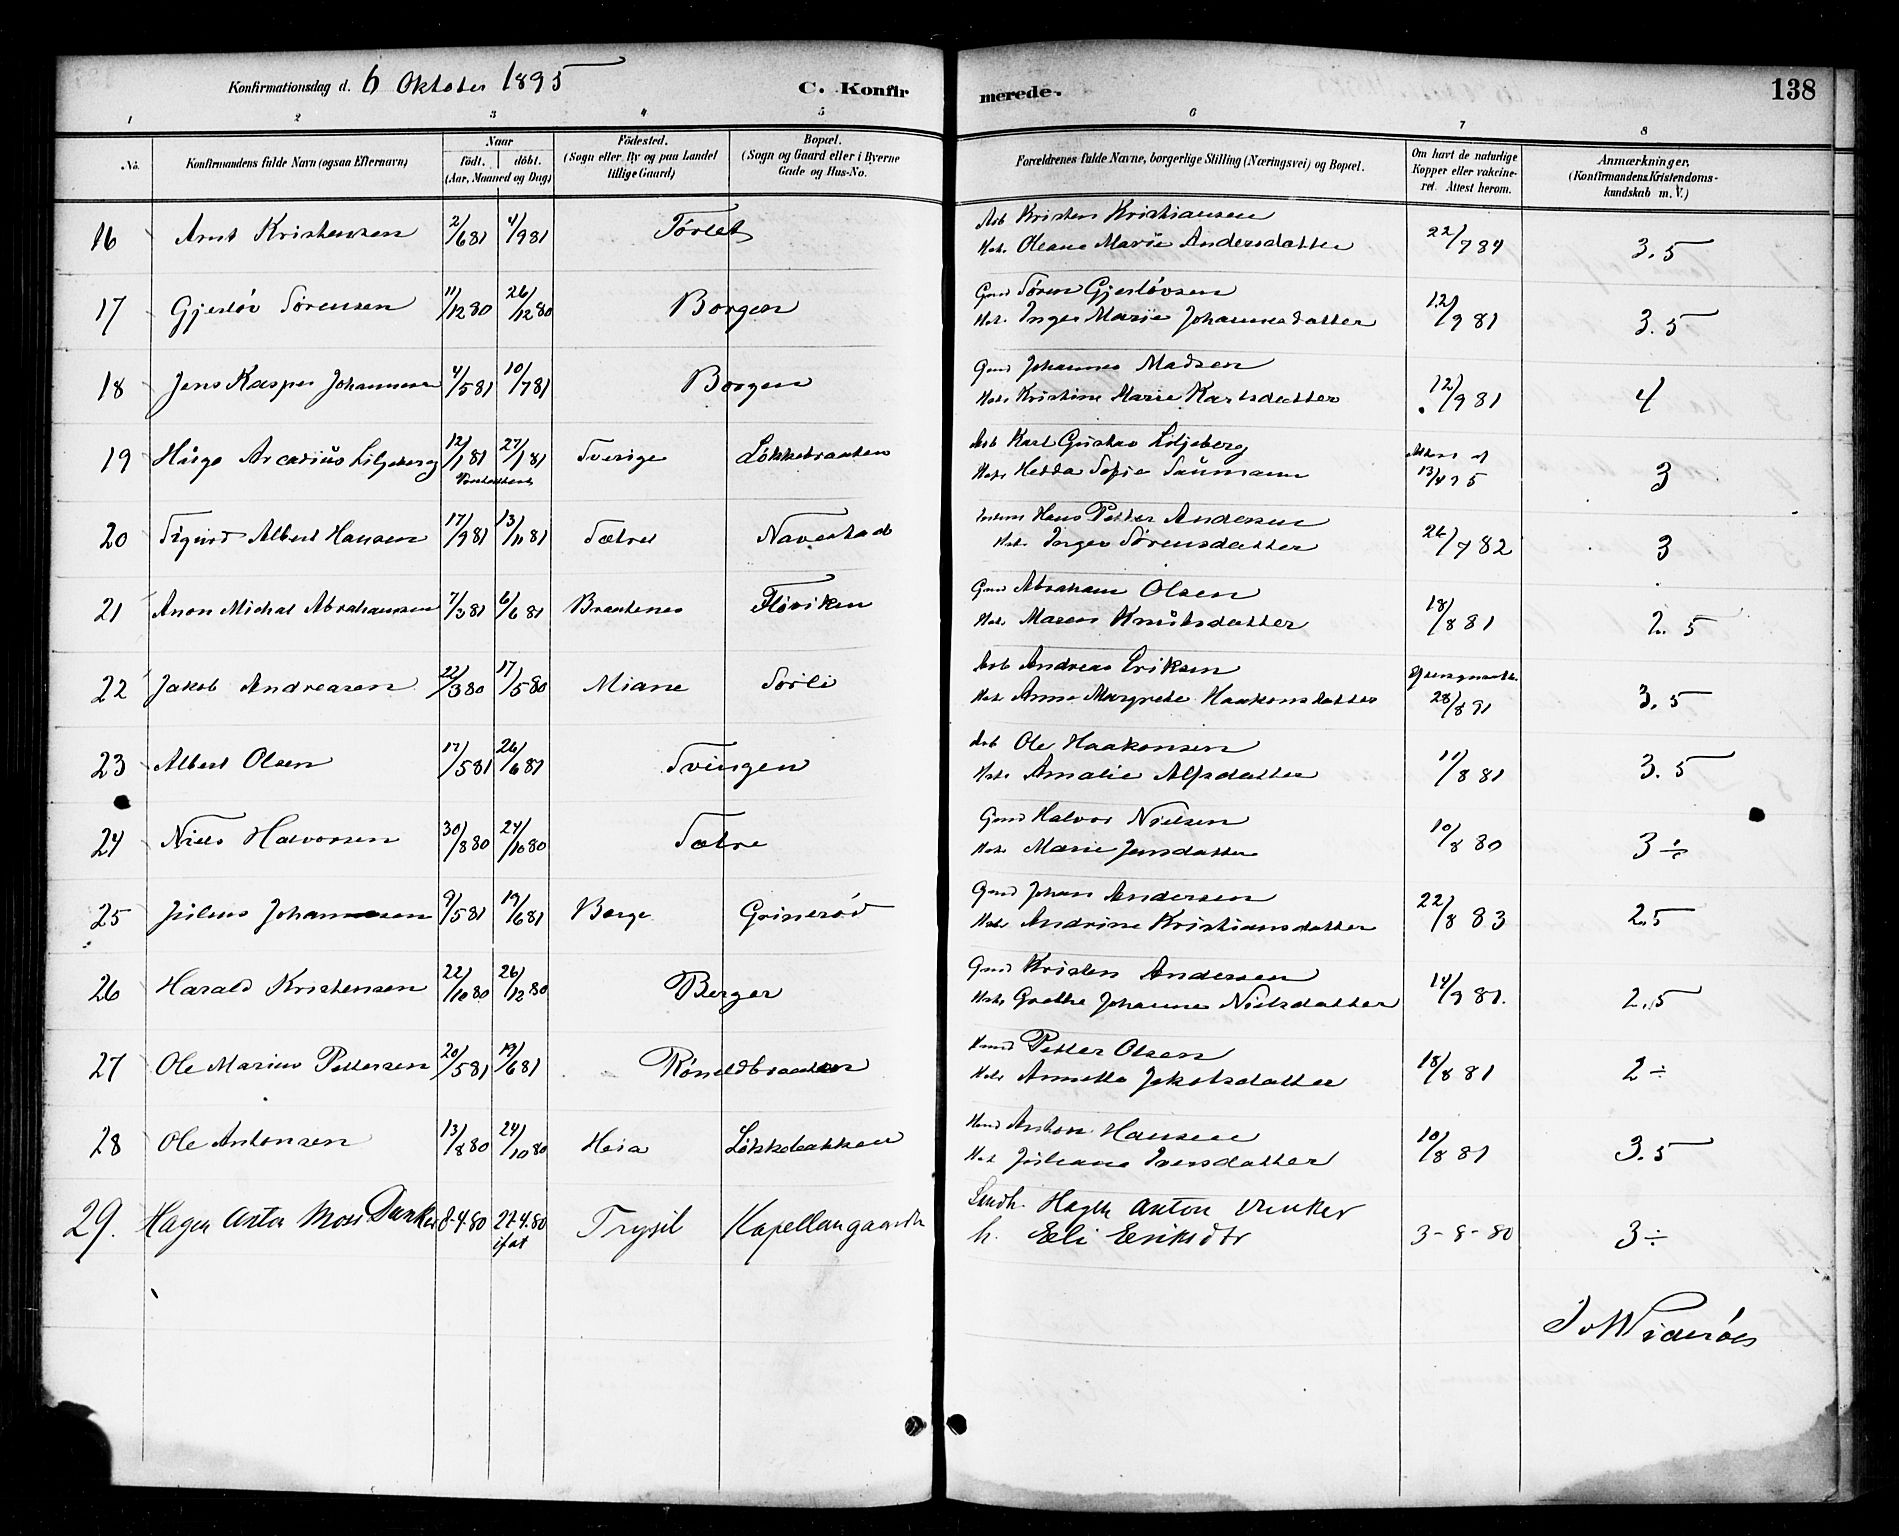 Konfirmationsdag d. 6 Oktober 1895 C. Konfir merede. 138
1 2 3 4 5 6 7 8
No. Konfirmandens fulde Navn (ogsaa Efternavn) Naar Födested. Bopæl. Forældrenes fulde Navne, borgerlige Stilling (Næringsvei) og Bopæl. Om havt de naturlige Anmærkninger.
födt. döbt. (Sogn eller By og paa Landet (Sogn og Gaard eller i Byerne Kopper eller vakcine- (Konfirmandens Kristendoms-
(Aar, Maaned og Dag) tillige Gaard) Gade og Hus-No. ret. Attest herom. kundskab m. V.)
16 Arnt Kristensen 2/6 81 4/9 81 Torlet Arb Kristen Kristiansen 22/7 84 3.5
Hst. Oleane Marie Andersdatter
17 Gjerløv Sørensen 11/12 80 26/12 80 Borgen Gmd Søren Gjerløvsen 12/9 81 3.5
Hst. Inger Marie Johannesdatter
18 Jens Kasper Johannesen 4/5 81 10/7 81 Borgen Gmd Johannes Madsen 12/9 81 4
Hst. Kristine Marie Karlsdatter
19 Hugo Arcadius Liljeberg 12/1 81 27/1 81 Sverige Løkkebraaten Arb Karl Gustav Liljeberg Attest af
Hst. Hedda Sofie 13/4 95 3
20 Sigurd Albert Hansen 17/9 81 13/11 81 Sætre Navestad Hans Petter Andersen 26/7 82 3
Hst. Inger Sørensdatter
21 Anon Michal Abrahamsen 7/3 81 6/6 81 Braatenes Floviken Gmd Abraham Olsen 18/8 81 2.5
Hst. Maren Knutsdatter
22 Jakob Andreasen 22/3 80 17/5 80 Miane Sorli Arb Andreas Eriksen
Hst. Anne Margrete Haakonsdatter 28/8 91 3.5
23 Albert Olsen 17/5 81 26/6 81 Svingen Arb Ole Haakonsen 11/8 81 3.5
Hst. Amalie Alfsdatter
24 Niels Halvorsen 30/8 80 24/10 80 Sætre Gmd Halvor Nielsen 10/8 80 3 ÷
Hst. Marie Jensdatter
25 Julius Johannesen 9/5 81 19/6 81 Berge Grinerød Gmd Johan Andersen 22/8 83 2.5
Hst. Andrine Kristiansdatter
26 Harald Kristensen 22/10 80 26/12 80 Berger Gmd Kristen Andersen 14/9 81. 2.5
Hst. Grethe Johanne Nielsdatter
27 Ole Marius Pettersen 20/5 81 19/6 81 Petter Olsen 18/8 81 2 ÷
Hst. Annette Jakobsdatter
28 Ole Antonsen 13/8 80 24/10 80 Heia Løkkebakken Anton Hansen 10/8 81 3.5
Hst. Juliane Iversdatter
29. Hagen Anton Moss Dunker 8-4.80 27.4.80 Trysil Kapellangaarden Hagen Anton Dunker
h. Eli Eriksdtr 3-8-80 3 ÷